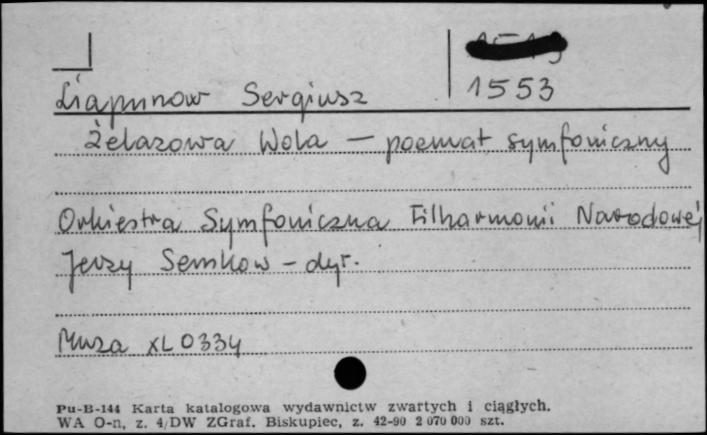 1553
Liapunow Sergiusz
Żelazowa Wola — poemat symfoniczny
Orkiestra Symfoniczna Filharmonii Narodowej
Jerzy Semkow - dyr.
Muza XL 0334
Pu-B-144 Karta katalogowa wydawnictw zwartych i ciągłych.
WA O-n, z. 4/DW ZGraf. Biskupiec, z. 42-90 2 070 000 szt.